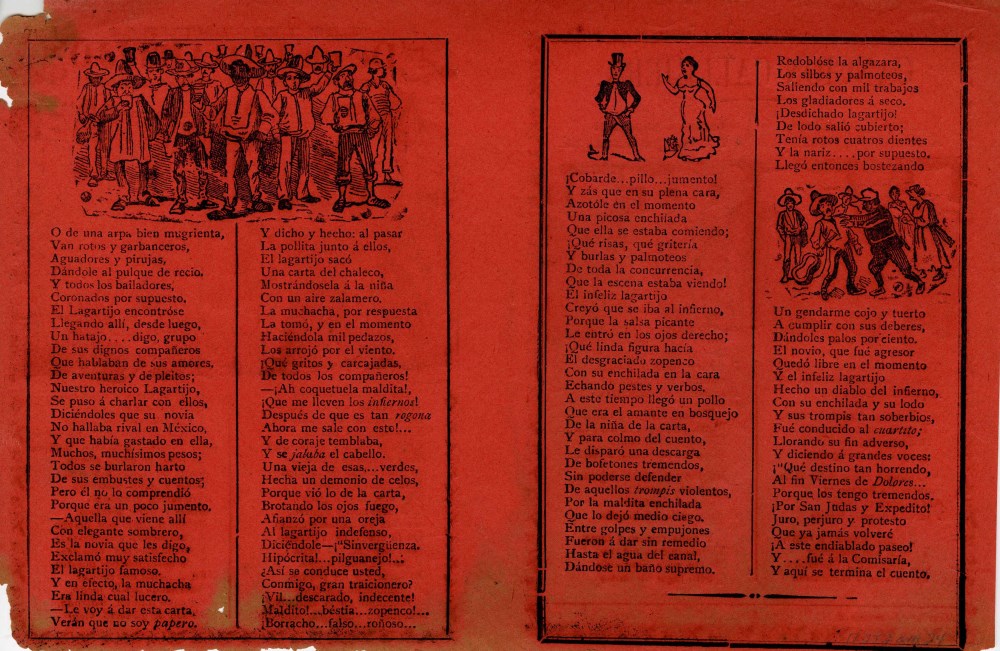 O de una arpa bien mugrienta,
Van rotos y garbanceros,
Aguadores y pirujas,
Dándole al pulque de recio,
Y todos los bailadores,
Coronados por supuesto.
El Lagartijo encontróse
Llegando allí, desde luego,
Un hatajo....digo, grupo
De sus dignos compañeros
Que hablaban de sus amores,
De aventuras y de pleitos;
Nuestro heroico Lagartijo,
Se puso á charlar con ellos,
Diciéndoles que su novia
No hallaba rival en México,
Y que había gastado en ella,
Muchos, muchísimos pesos;
Todos se burlaron harto
De sus embustes y cuentos;
Pero él no lo comprendió
Porque era un poco jumento.
—Aquella que viene allí
Con elegante sombrero,
Es la novia que les digo,
Exclamó muy satisfecho
El lagartijo famoso.
Y en efecto, la muchacha
Era linda cual lucero.
—Le voy á dar esta carta,
Verán que no soy papero.
Y dicho y hecho: al pasar
La pollita junto á ellos,
El lagartijo sacó
Una carta del chaleco,
Mostrándosela á la niña
Con un aire zalamero.
La muchacha, por respuesta
La tomó, y en el momento
Haciéndola mil pedazos,
Los arrojó por el viento.
¡Qué gritos y carcajadas,
De todos los compañeros!
—¡Ah coquetuela maldita!,
¡Que me lleven los infiernos!
Después de que es tan rogona
Ahora me sale con esto!...
Y de coraje temblaba,
Y se jalaba el cabello.
Una vieja de esas,...verdes,
Hecha un demonio de celos,
Porque vió lo de la carta,
Brotando los ojos fuego,
Afianzó por una oreja
Al lagartijo indefenso,
Diciéndole—¡"Sinvergüenza.
Hipócrita!...pilguanejo!...
¿Así se conduce usted,
Conmigo, gran traicionero?
¡Vil...descarado, indecente!
Maldito!...béstia...zopenco!...
¡Borracho...falso...roñoso...
¡Cobarde...pillo...jumento!
Y zás que en su plena cara,
Azotóle en el momento
Una picosa enchilada
Que ella se estaba comiendo;
¡Qué risas, qué gritería
Y burlas y palmoteos
De toda la concurrencia,
Que la escena estaba viendo!
El infeliz lagartijo
Creyó que se iba al infierno,
Porque la salsa picante
Le entró en los ojos derecho;
¡Qué linda figura hacía
El desgraciado zopenco
Con su enchilada en la cara
Echando pestes y verbos.
A este tiempo llegó un pollo
Que era el amante en bosquejo
De la niña de la carta,
Y para colmo del cuento,
Le disparó una descarga
De bofetones tremendos,
Sin poderse defender
De aquellos trompis violentos,
Por la maldita enchilada
Que lo dejó medio ciego.
Entre golpes y empujones
Fueron á dar sin remedio
Hasta el agua del canal,
Dándose un baño supremo.
Redoblóse la algazara,
Los silbos y palmoteos,
Saliendo con mil trabajos
Los gladiadores á seco.
¡Desdichado lagartijo!
De lodo salió cubierto;
Tenía rotos cuatros dientes
Y la nariz....por supuesto.
Llegó entonces bostezando
Un gendarme cojo y tuerto
A cumplir con sus deberes,
Dándoles palos por ciento.
El novio, que fué agresor
Quedó libre en el momento
Y el infeliz lagartijo
Hecho un diablo del infierno,
Con su enchilada y su lodo
Y sus trompis tan soberbios,
Fué conducido al cuartito;
Llorando su fin adverso,
Y diciendo á grandes voces:
¡"Qué destino tan horrendo,
Al fin Viernes de Dolores...
Porque los tengo tremendos.
¡Por San Judas y Expedito!
Juro, perjuro y protesto
Que ya jamás volveré
¡A este endiablado paseo!
Y....fué á la Comisaría,
Y aquí se termina el cuento,